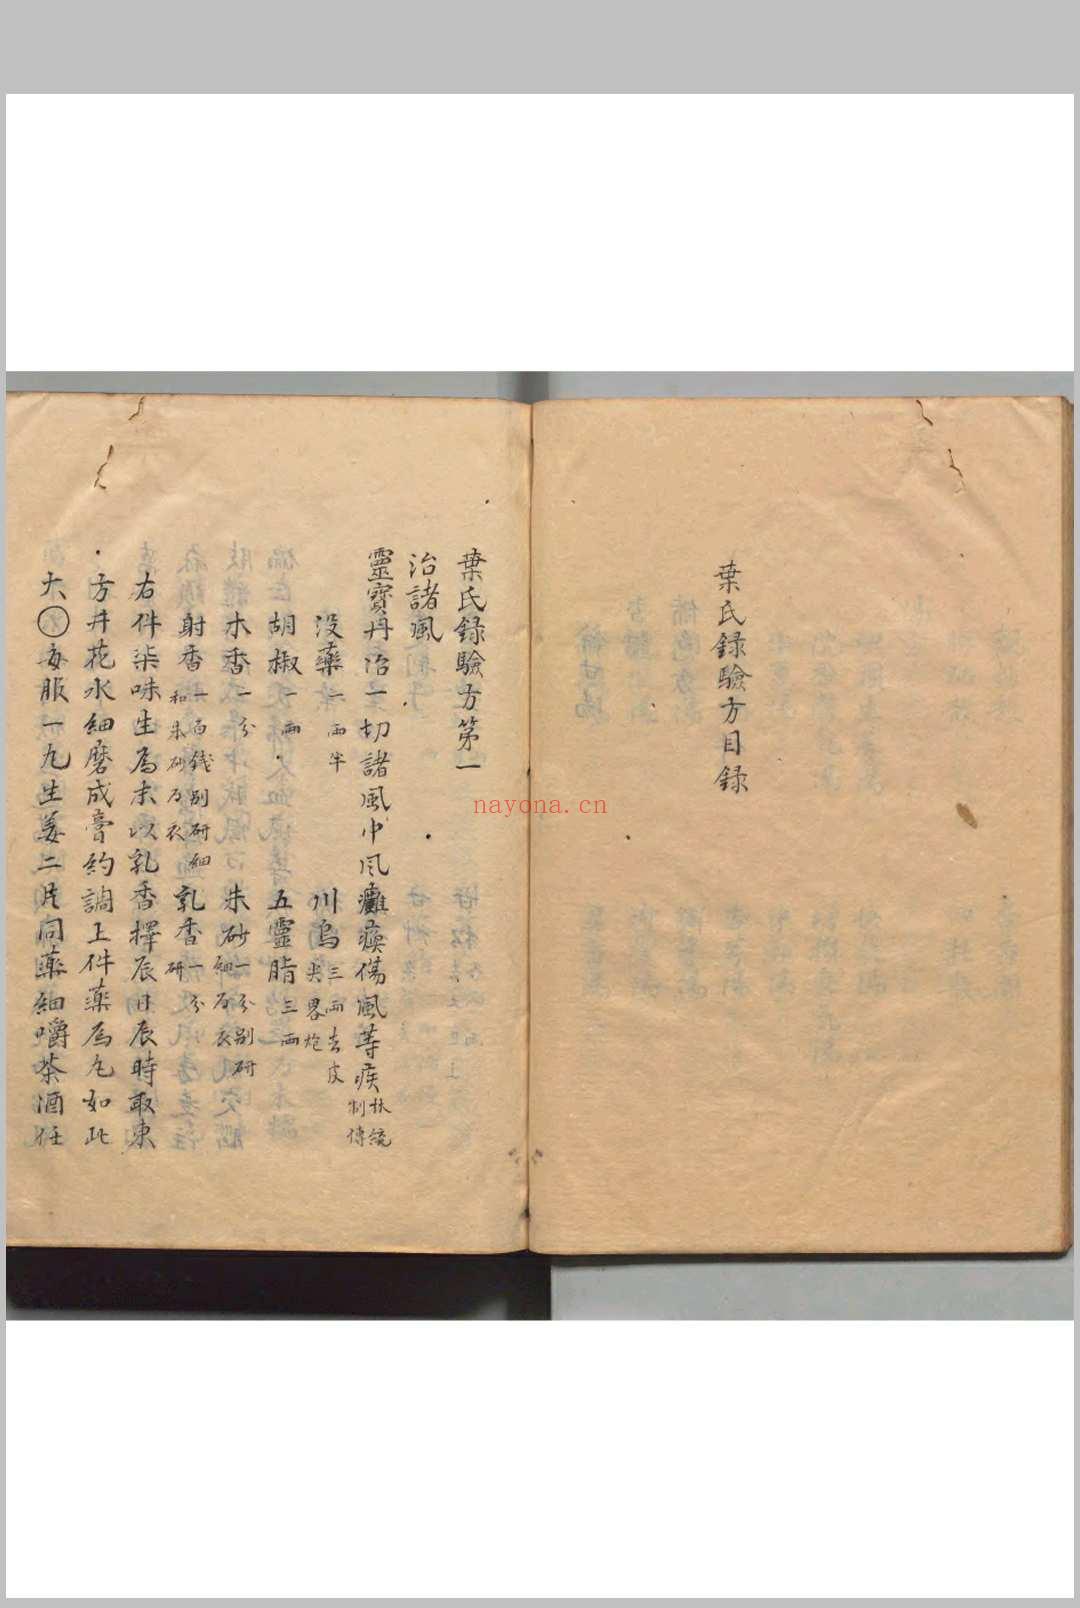 葉氏録驗方目録
葉氏録驗方第一
治諸風
靈寳丹治一切諸風中風癱瘓傷風等疾
没藥一兩半 川烏三兩去皮尖畧炮
胡椒一兩 五靈脂三兩
木香一分 朱砂一分别研細為衣
射香和朱砂為衣 乳香一分研
右件柒味生為末以乳香擇辰日辰時取東
方井花水細磨成膏約調上件藥為丸如此
大○每服一丸生姜二片同藥細嚼茶酒任
nayona.cn